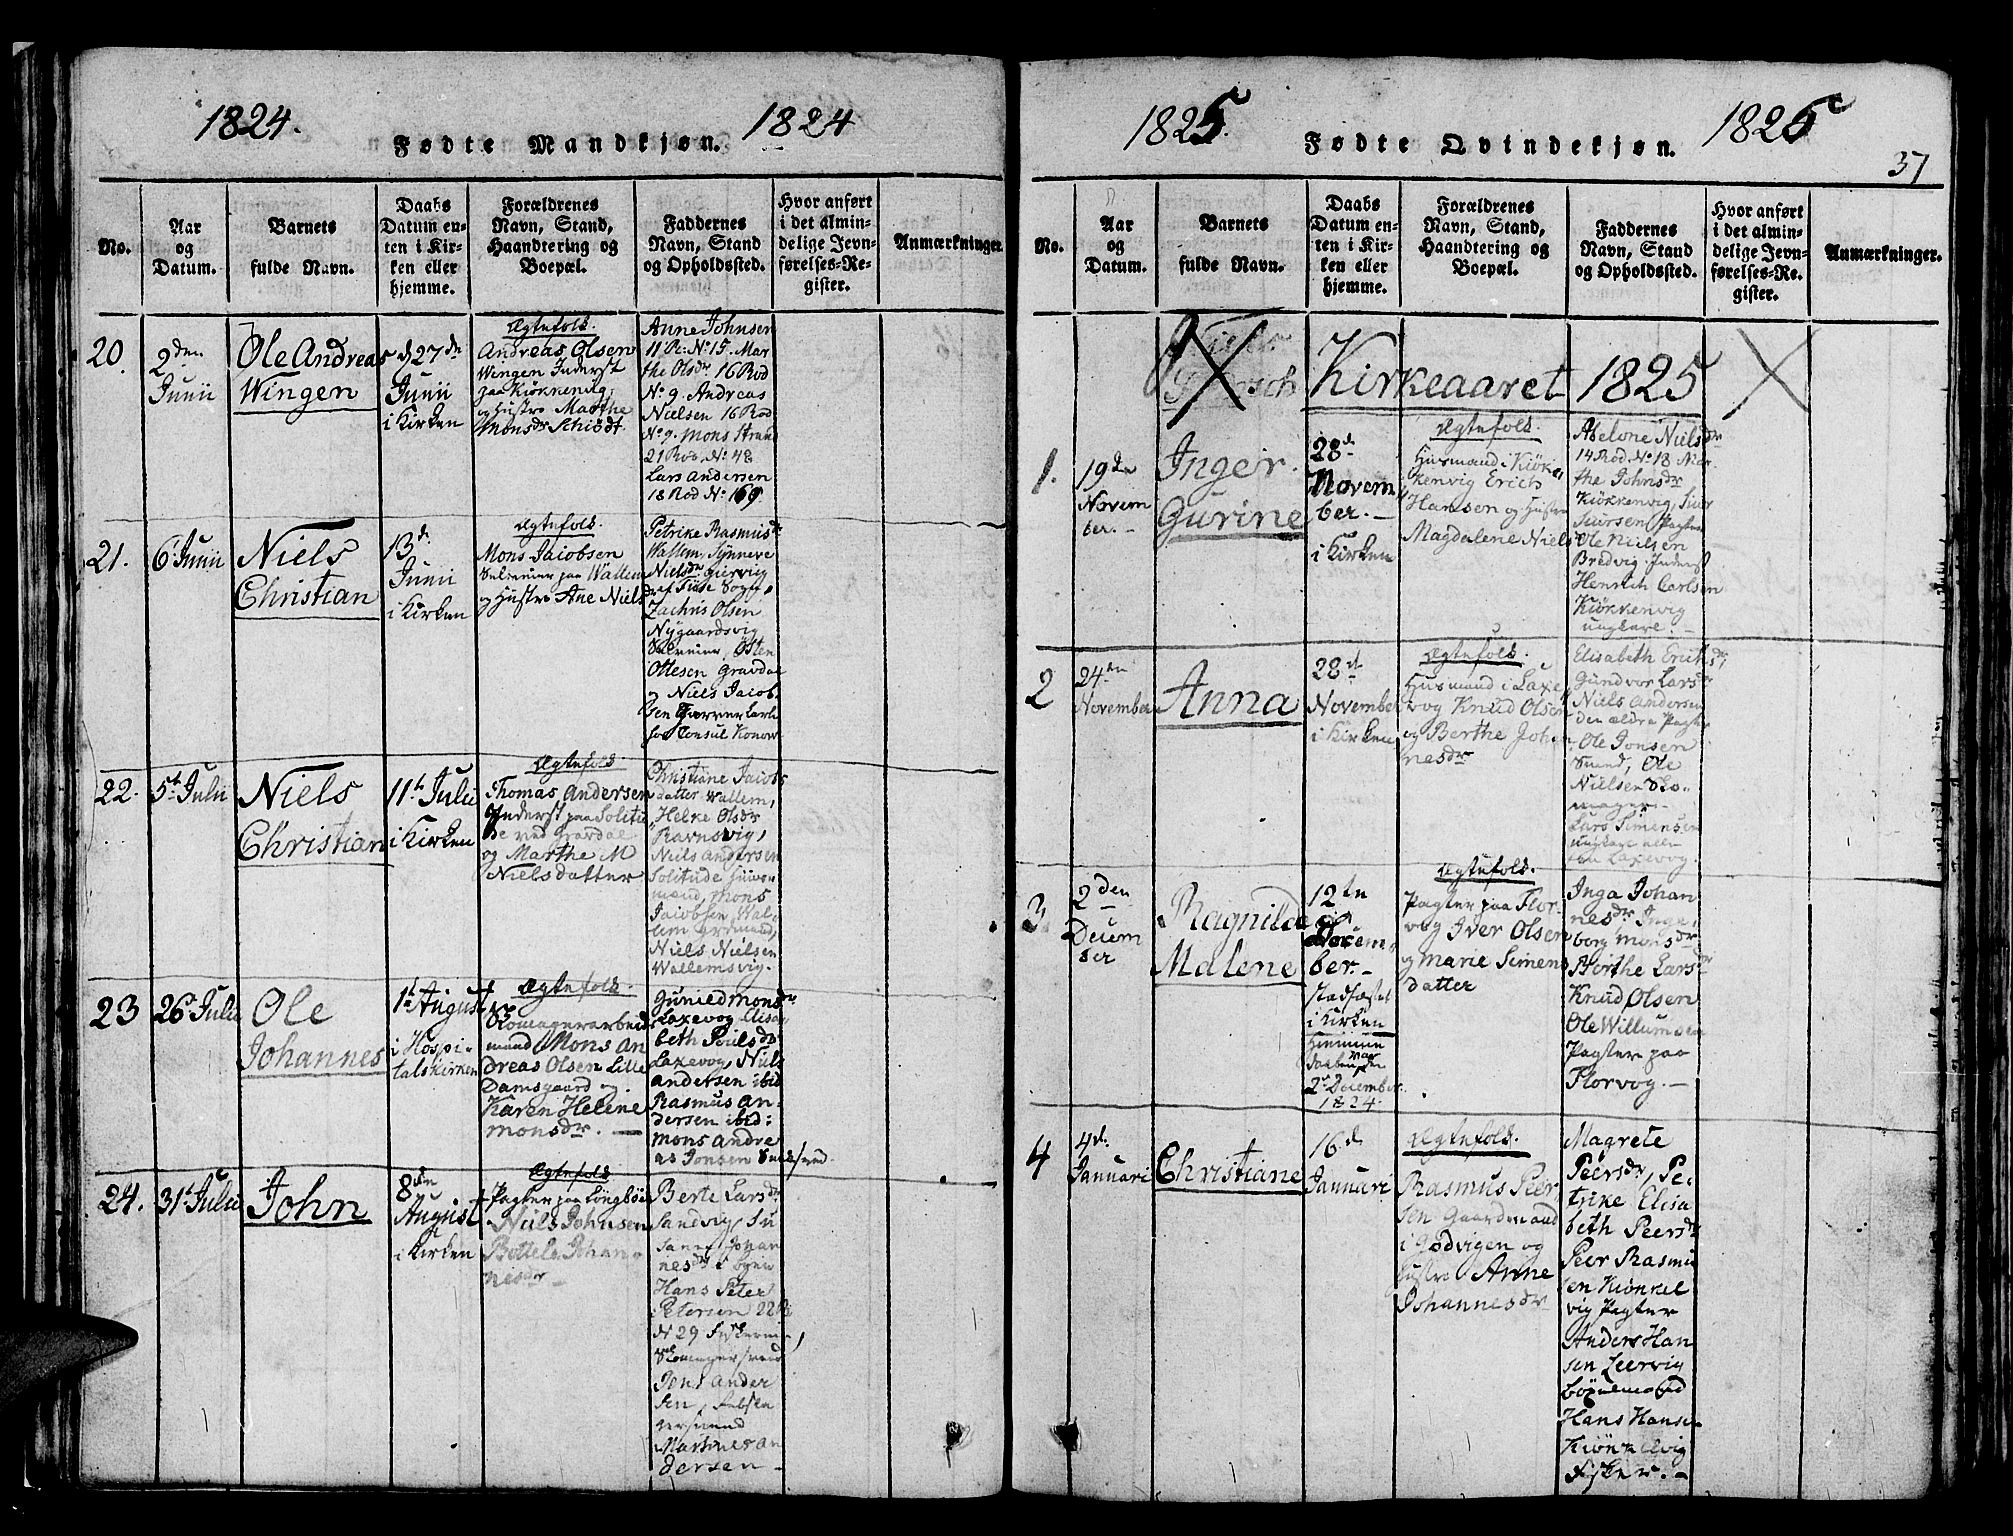 1824. Fødte Mandkjøn. 1824
No.
Aar
og
Datum.
Barnets
fulde Navn.
Daabs
Datum en-
ten i Kir-
ken eller
hjemme.
Forældrenes
Navn, Stand,
Haandtering og
Boepæl.
Faddernes
Navn, Stand
og Opholdssted.
Hvor anført
i det almin-
delige Jevn-
førelses-Re-
gister.
Anmærkninger.
20.
2den
Junii
Ole Andreas
Wingen
d 27de
Junii
i Kirken
Ægtefolk.
Andreas Olsen
Wingen Inderst
paa Kiøkkening,
og Hustro Marthe
Monsdr Schiödt.
Anne Johnsen
11 R: No 15. Mar
the Olsdr 16 Rod
No 9. Andreas
Nielsen 16 Rod
No 9. Mons Strand
21 Rod, No 48
Lars Andersen
18 Rod No 169.
21.
6 Junii
Niels
Christian
13d.
Junii
i Kirken
Ægtefolk.
Mons Jacobsen
Selveier paa Wallem
og Hustro Ane Niels
dr
Petrike Rasmusdr
Wallem, Synneve
Nielsdr
af Fuse Sogn,
Zachris Olsen
Nygaardsvig
Selveier, Østen
Ottesen Gravdal
og Niels Jacob-
sen
for Consul Konow
22.
5t Julii
Niels
Christian
11t Julii
i Kirken
Ægtefolk
Thomas Andersen
Inderst paa Solitu
de ved Gravdal
og Marthe M
Nielsdatter
Christiane Jacobs
datter Wallem,
Helke Olsdr
Ravnsvig,
Niels Andersen
Solitude Huus-
mand, Mons
Jacobsen, Wal-
lem
Niels Nielsen
Wallemsvig.
23
26 Julii
Ole
Johannes
1t August
i Hospi-
talskirken
Ægtefolk
Skomagerarbeids
mand Mons An
dreas Olsen Lille
Damsgaard og
Karen Helene
Monsdr.
Gunied Monsdr
Laxevog Elisa
beth Poulsdr
Laxevog, Niels
Andersen ibid
Rasmus An-
dersen ibid:
Mons Andre
as Jonsen
24.
31t Julii
John
8de
August
i Kirken
Ægtefolk
Pagter paa Longböe
Niels Johnsen
Bottele Johan-
nesdr
Berte Larsdr
Sandvig, Su
sanne Johan
nesdr i Byen
Hans Peter
Petersen 22 R
N 29
Skomagersvend
Jens Ander
sen,
Martines An
dersen
1825. Fødte Qvindekjøn. 1825
37
No.
Aar
og
Datum.
Barnets
fulde Navn.
Daabs
Datum en-
ten i Kir-
ken eller
hjemme.
Forældrenes
Navn, Stand,
Haandtering og
Boepæl.
Faddernes
Navn, Stand
og Opholdssted.
Hvor anført
i det almin-
delige Jevn-
førelses-Re-
gister.
Anmærkninger.
Kirkeaaret 1825
1.
19de
Novem
ber.
Inger
Gurine
28d.
Novem
ber.
i Kirken
Ægtefolk.
Husmand i Kiök-
kenvig Erich
Hansen og Hustro
Magdalene Nielsdr
Abelone Nielsdr
14 Rod. No 18 Mar
the Johnsdr
Kiökkenvig,
Ole Nielsen
Bredvig Inderst
Henrich Carlsen
Kiökkenvig
ungkarl.
2
24de
November
Anna
28d
November
i Kirken
Ægtefolk.
Husmand i Laxe
vog Knud Olsen
og Berthe Johan
nesdr
Elisabeth Erichsdr,
Gundvor Larsdr
Niels Andersen
den ældre Pagter
Ole Jonsen
Svend, Ole
Nielsen Sko-
mager.
Lars Simensen
ungkarl alle
fra Laxevog.
3.
2den
Decem
ber
Ragnilde
Malene
12te
Decem-
ber.
Stadfæstet
i Kirken
Hiemme
Daaben
2d December
1824.
Ægtefolk.
Pagter paa Flor-
vog Iver Olsen
og Marie Simens
datter
Inga Johan
nesdr Inge-
borg Monsdr
Berthe Larsdr
Knud Olsen
Ole Willumsen
Pagter paa
Florvog.
4
4d.
Januari
Christiane
16d
Januari
Ægtefolk.
Rasmus Peer
sen Gaardmand
i Godvigen og
Hustro Anne
Johannesdr
Magrete
Peersdr, Pe-
trike Elisa
beth Peersdr
Peer Rasmu
sen Kiönkel
vig Pagter
Anders Han
sen Leervig
Hans Hanse
Kiönkelvig
Fisker.